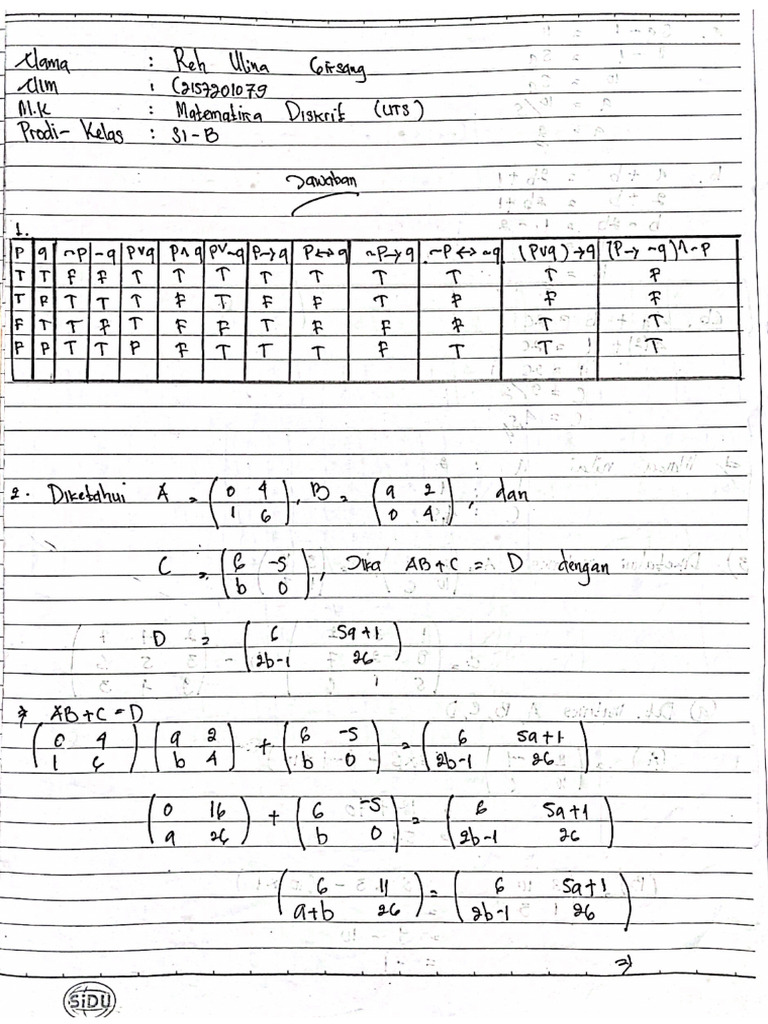 Nama : Reh Ulina Girsang
NIM : C2157201079
M.K : Matematika Diskrit (UTS)
Prodi-Kelas : S1-B
Jawaban
1.
P q ¬P ¬q P∨q P∧q P∨¬q P→q P↔q ¬P→q ¬P↔¬q (P∨q)→q (P→¬q)∧¬P
T T F F T T T T T T T T F
T F T T T F T F F T F F F
F T T F T F F T F F F T T
F F T T F F T T T F T T T
2. Diketahui A = (0 4 1 6), B = (a 2 0 4), dan
C = (6 -5 b 0), Jika AB+C = D dengan
D = (6 5a+1 2b-1 26)
⇒ AB+C = D
(0 4 1 6) (a 2 b 4) + (6 -5 b 0) = (6 5a+1 2b-1 26)
(0 16 a 26) + (6 -5 b 0) = (6 5a+1 2b-1 26)
(6 11 a+b 26) = (6 5a+1 2b-1 26)
⇒
SiDU